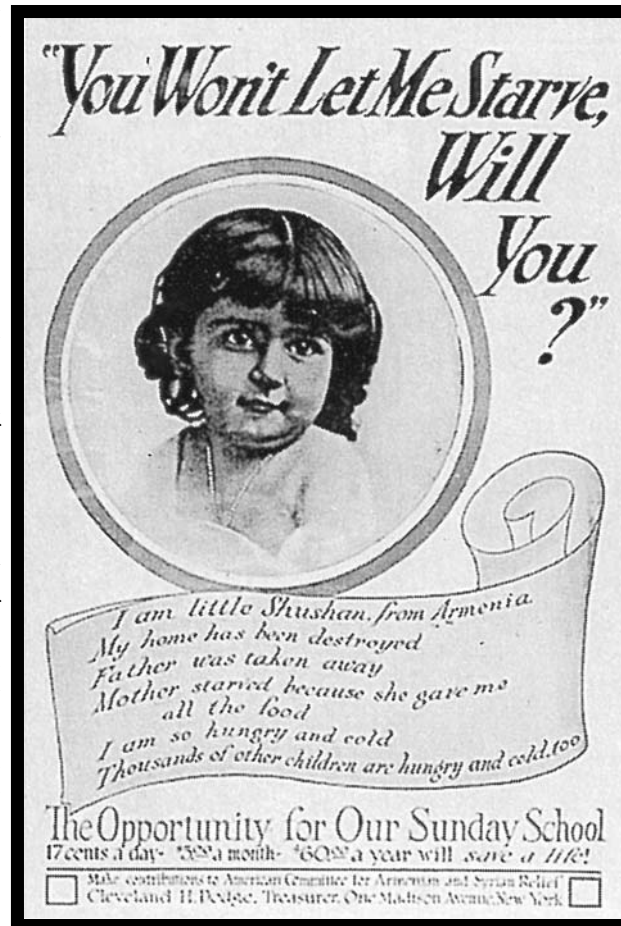 "You Won't Let Me Starve,
Will
You
?"
I am little Shushan, from Armenia
My home has been destroyed
Father was taken away
Mother starved because she gave me
all the food
I am so hungry and cold
Thousands of other children are hungry and cold, too
The Opportunity for Our Sunday School
17 cents a day- $5.00 a month- $60.00 a year will save a life!
Make contributions to American Committee for Armenian and Syrian Relief
Cleveland H. Dodge, Treasurer, One Madison Avenue, New York